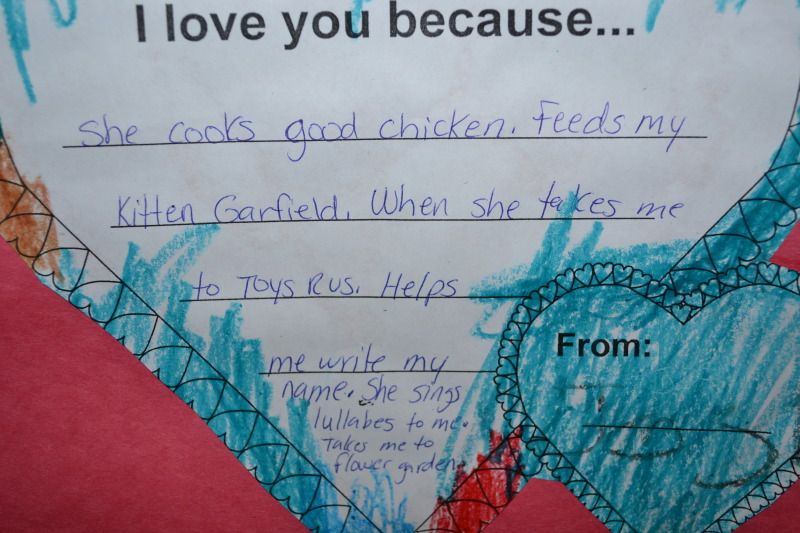 I love you because...
She cooks good chicken. Feeds my
Kitten Garfield. When she takes me
to Toys Rus. Helps
me write my
name. She sings
lullabes to me.
Takes me to
flower garden.
From: